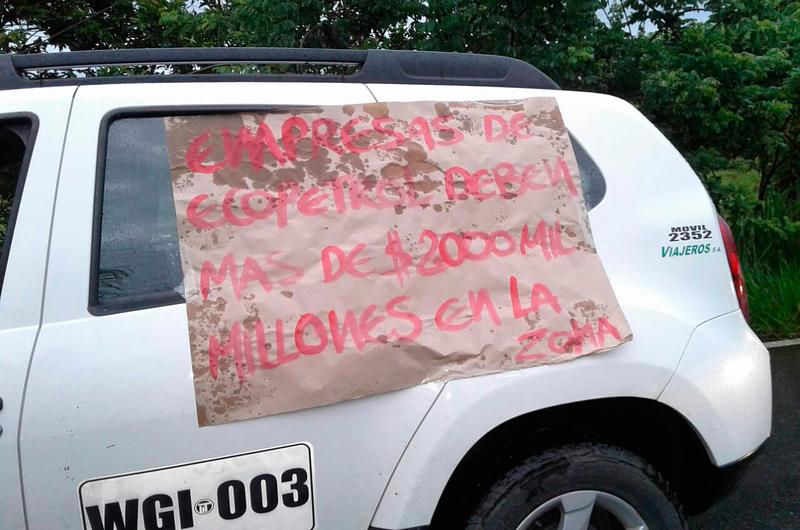 EMPRESAS DE
ECOPETROL DEBEN
MAS DE $2000 MIL
MILLONES EN LA
ZONA
MOVIL
2352
VIAJEROS S.A.
WGI 003